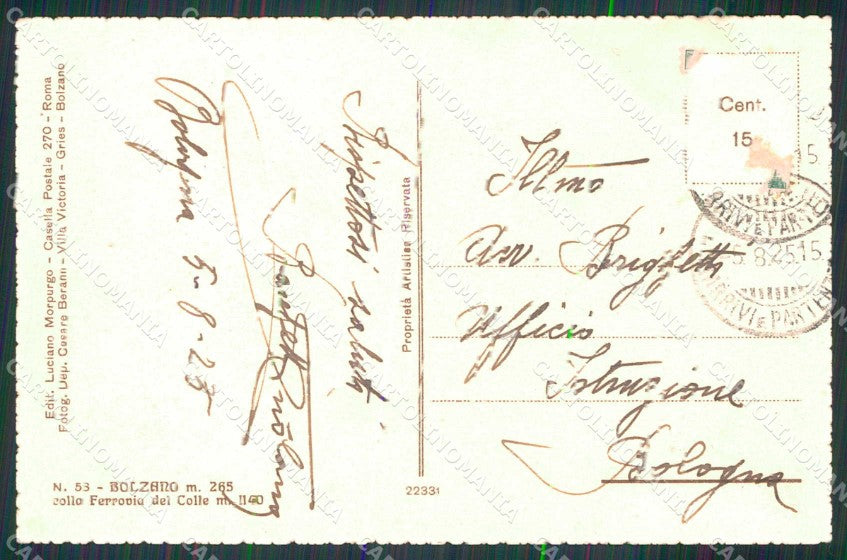 Edit. Luciano Morpurgo - Casella Postale 270 - Roma
Fotog. Dep. Cesare Berann - Villa Victoria - Gries - Bolzano
Bologna 5-8-25
Rispettosi saluti
Proprietà Artistica Riservata
N. 53 - BOLZANO m. 265
colla Ferrovia del Colle m. 1140
22331
Cent.
15
Illmo
Avv. Brighetti
Ufficio
Istruzione
Bologna
ARRIVI E PARTENZ
5.8.25.15
ARRIVI E PARTEN
CARTOLINOMANIA